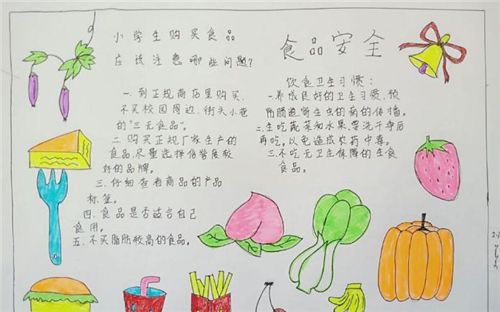 小学生购买食品
应该注意哪些问题?
一.到正规商店里购买,
不买校园周边、街头小巷
的"三无食品"。
二.购买正规厂家生产的
食品,尽量选择信誉度较
好的品牌。
三.仔细查看商品的产品
标签。
四.食品是否适合自己
食用。
五.不买脂肪较高的食品。
食品安全
饮食卫生习惯:
一.养成良好的卫生习惯,预
防肠道寄生虫的病的传播。
二.生吃蔬菜和水果,要洗干净后
再吃,以免造成农药中毒。
三.不吃无卫生保障的生食
食品。